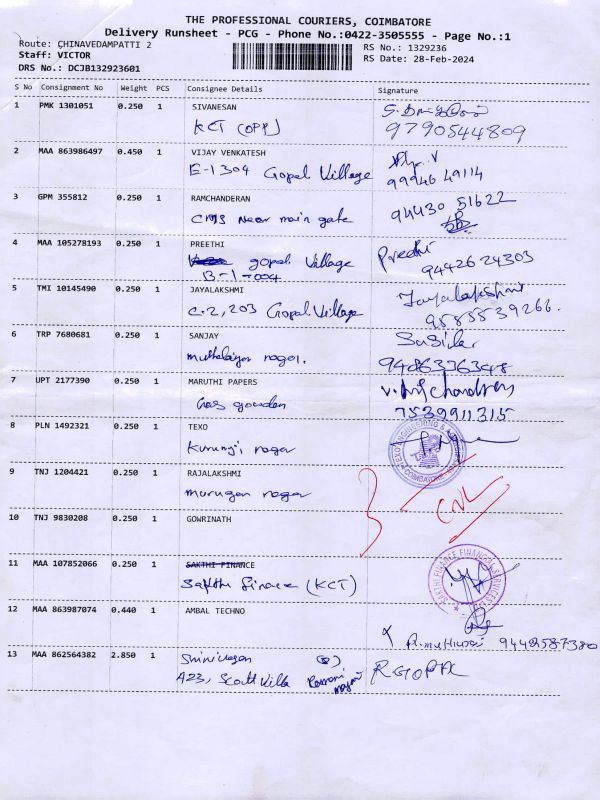 THE PROFESSIONAL COURIERS, COIMBATORE
Delivery Runsheet - PCG - Phone No.:0422-3505555 - Page No.:1
Route: CHINAVEDAMPATTI 2 RS No.: 1329236
Staff: VICTOR RS Date: 28-Feb-2024
DRS No.: DCJB132923601
S No Consignment No Weight PCS Consignee Details Signature
1 PMK 1301051 0.250 1 SIVANESAN
KCT (OPP) 9790544809
2 MAA 863986497 0.450 1 VIJAY VENKATESH
E-1304 Gopal Village 99946 49114
3 GPM 355812 0.250 1 RAMCHANDERAN 94430 51622
CMS Near main gate
4 MAA 105278193 0.250 1 PREETHI Preethi
gopal Village 9442624303
B-1-004
5 TMI 10145490 0.250 1 JAYALAKSHMI Jayalakshmi
C.2, 203 Gopal Village 9585539266.
6 TRP 7680681 0.250 1 SANJAY
nagar. 9486376348
7 UPT 2177390 0.250 1 MARUTHI PAPERS
Gas gowdon 7539911315
8 PLN 1492321 0.250 1 TEXO
Kurunji nagar
TEXO ENGINEERING &
COIMBATORE
9 TNJ 1204421 0.250 1 RAJALAKSHMI
murugan nagar
CNL
10 TNJ 9830208 0.250 1 GOWRINATH
11 MAA 107852066 0.250 1 SAKTHI FINANCE
Sakthi Finance (KCT)
SAKTHI FINANCE FINANCIAL SERVICES
12 MAA 863987074 0.440 1 AMBAL TECHNO
9442587380
13 MAA 862564382 2.850 1 Shrinivasan
A23, Scott Villa RGOPAL